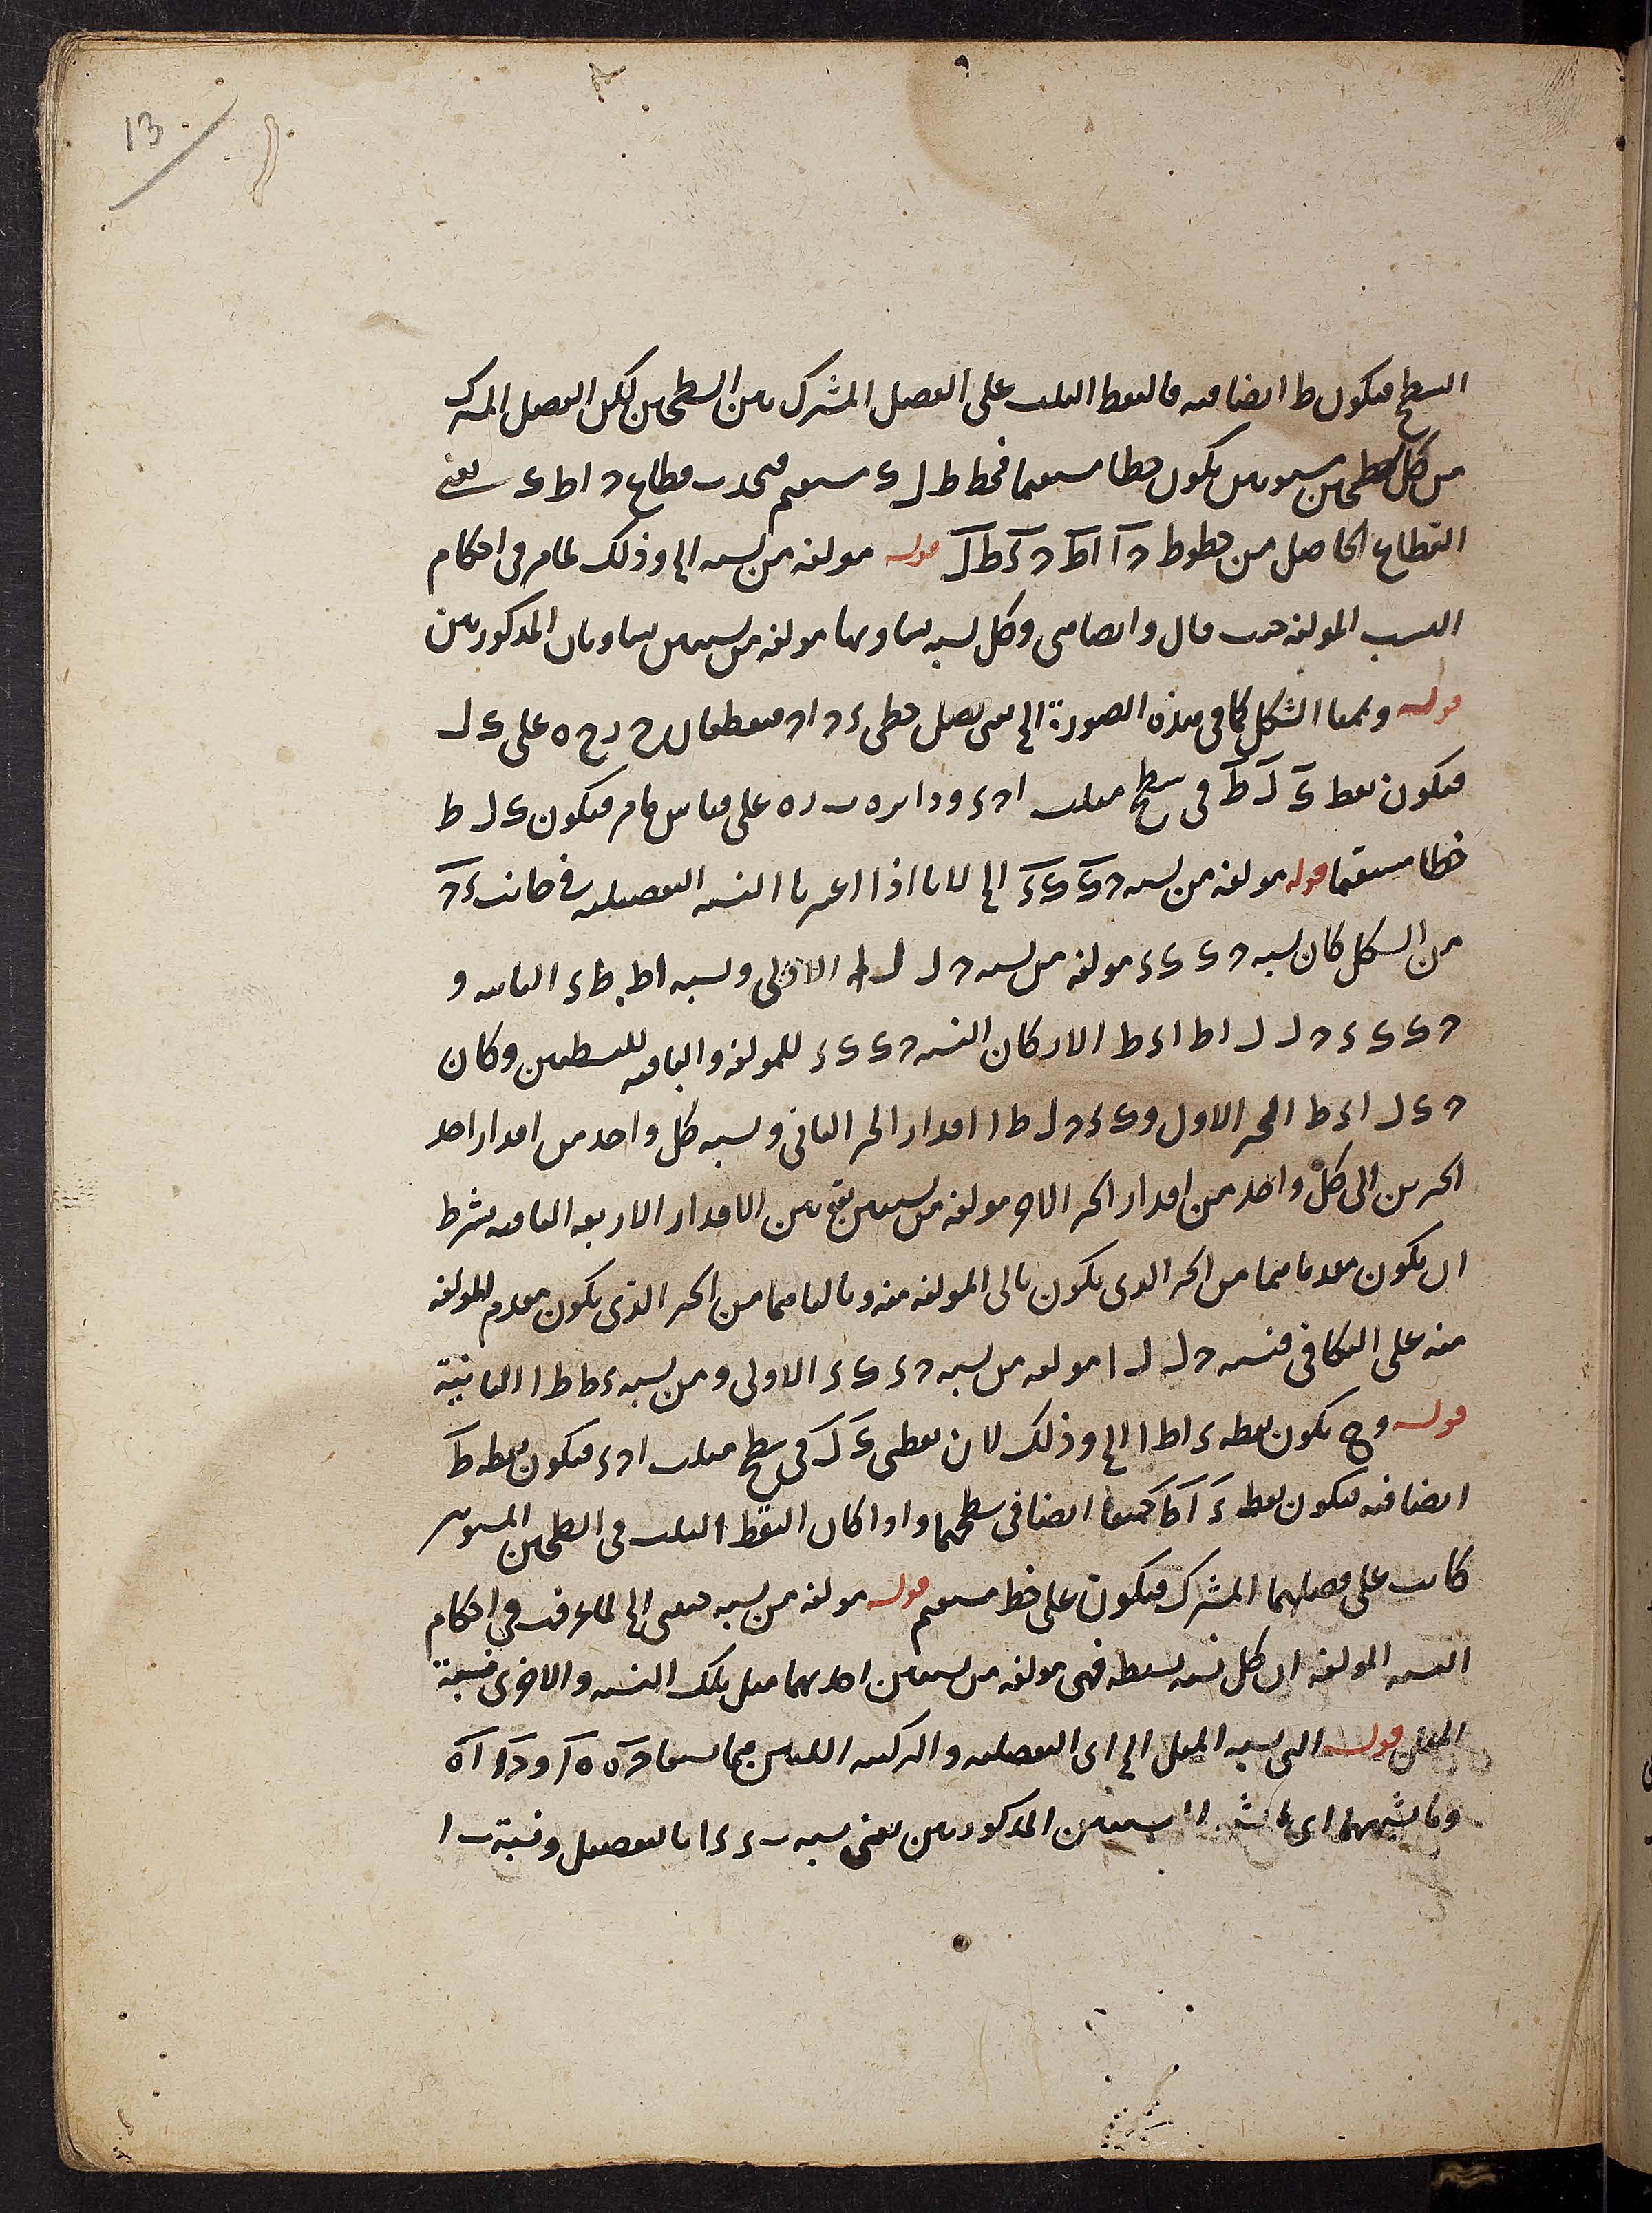 13
السطح فيكون ط ايضا فيه فالنقط الثلث على الفصل المشترك بين السطحين لكن الفصل المشترك
من كل سطحين مستويين يكون خطا مستقيما فخط ط ل ى مستقيم فيحدث قطاع ح ا ط ى يعنى
القطاع الحاصل من خطوط ح ا ا ط ح ى ط ل قوله مولفة من نسبة الخ وذلك لما مر فى احكام
النسب المولفة حيث قال وايضا وكل نسبة يساويها مولفة من نسبتين يساويان المذكورتين
قوله وتمعا الشكل كما فى هذه الصورة الخ بين نصل خطى ء ح ا ح فيقطعان على ى ل
فيكون نقط ى ل ط فى سطح مثلث ا ح ء ودايرة ب ر ه على قياس ما مر فيكون ى ل ط
خطا مستقيما قوله مولفة من نسبة ح ى ى ء الخ لانا اذا اعتبرنا النسبة التفصيلية فى جانب ء ح
من الشكل كان نسبة ح ى ى ء مولفة من نسبة ح ل ل ا الاولى ونسبة ا ط ط ء الثانية و
ح ى ى ء ح ل ل ا ط ا ء ط الاركان النسبة ح ى ى ء للمولفة والباقية للبسيطتين وكان
ح ى ل ا ء ط الحيز الاول و ى ء ح ل ط ا اقدار الحيز الثانى ونسبة كل واحد من اقدار احد
الحيزين الى كل واحد من اقدار الحيز الاخر مولفة من نسبتين تقع بين الاقدار الاربعة الباقية بشرط
ان يكون مقدماهما من الحيز الذى يكون تالى المولفة منه وتالياهما من الحيز الذى يكون مقدم المولفة
منه على التكافى فنسبة ح ل ل ا مولفة من نسبة ح ى ى ء الاولى ومن نسبة ء ط ط ا الثانية
قوله وح يكون نقطة ء ا ط الخ وذلك لان نقطى ى ل فى سطح مثلث ا ح ء فيكون نقطة ط
ايضا فيه فيكون نقط ء ا ط جميعا ايضا فى سطحهما واذا كان النقط الثلث فى السطحين المستويين
كانت على فصلهما المشترك فيكون على خط مستقيم قوله مولفة من نسبة الخ لما عرفت فى احكام
النسبة المولفة ان كل نسبة بسيطة فهى مولفة من نسبتين احديهما مثل تلك النسبة والاخرى نسبة
المثل قوله التى نسبة المثل الخ اى التفصيلية والتركيبية اللتين هما نسبتا ح ه ه ا و ح ا ا ه
وما يشبههما اى المذكورتين يعنى نسبة ب ء ء ا بالتفصيل ونسبة ب ا